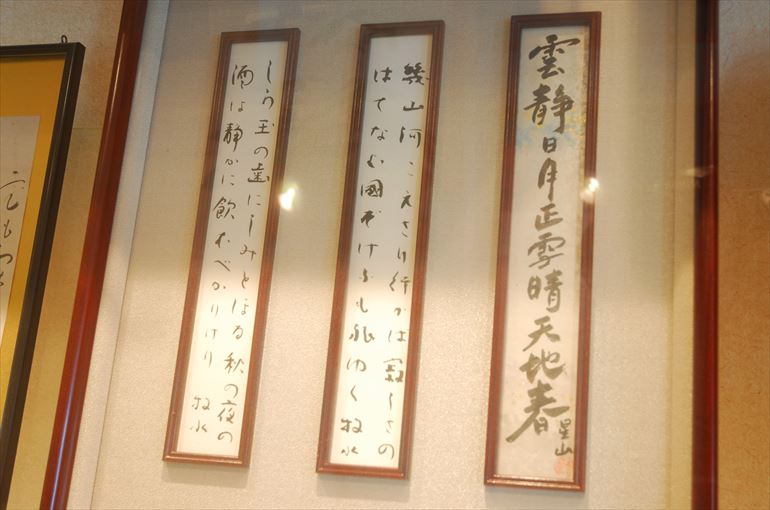 雲静日月正雪晴天地春
星山
幾山河こえさり行かば寂しさの
はてなむ國ぞけふも旅ゆく 牧水
しら玉の歯にしみとほる秋の夜の
酒は静かに飲むべかりけり 牧水